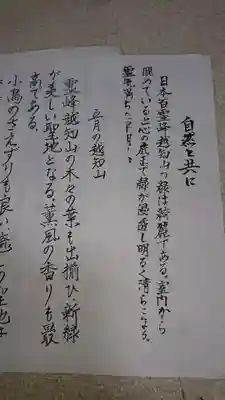 自然と共に
日本百霊峰越知山の緑は綺麗である。室内から
眺めていると心の底まで緑が浸透し明るく清らかになる。
霊峰
五月の越知山
霊峰越知山の木々の葉も出揃い、新緑
が美しい聖地となる。薫風の香りも最
高である。
小鳥のさえずりも良い、